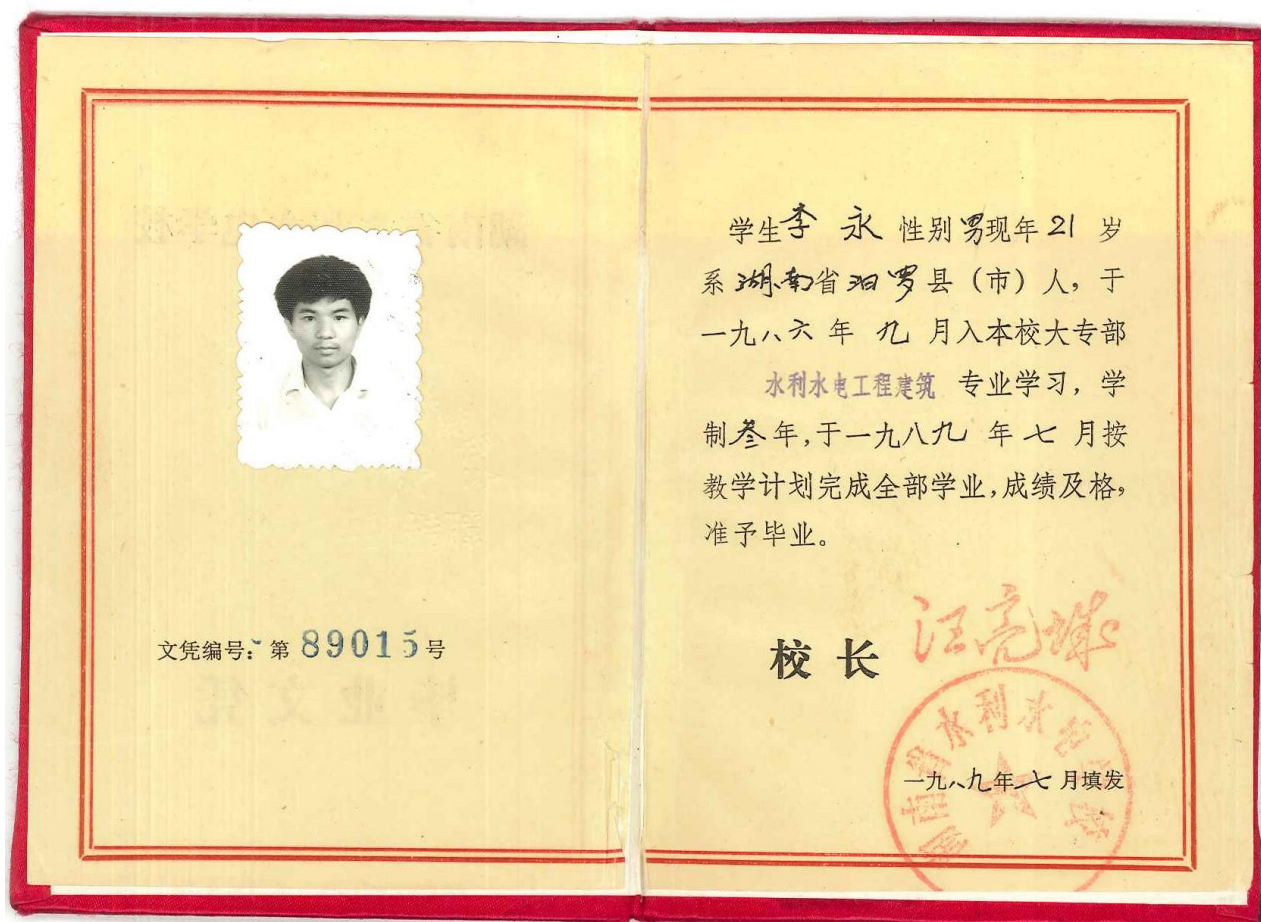 文凭编号:第 89015 号
学生李永性别男现年21岁
系湖南省汨罗县（市）人，于
一九八六年九月入本校大专部
水利水电工程建筑 专业学习，学
制叁年，于一九八九年七月按
教学计划完成全部学业，成绩及格，
准予毕业。
校长 汪亮
湖南省水利水电学校
一九八九年七月填发